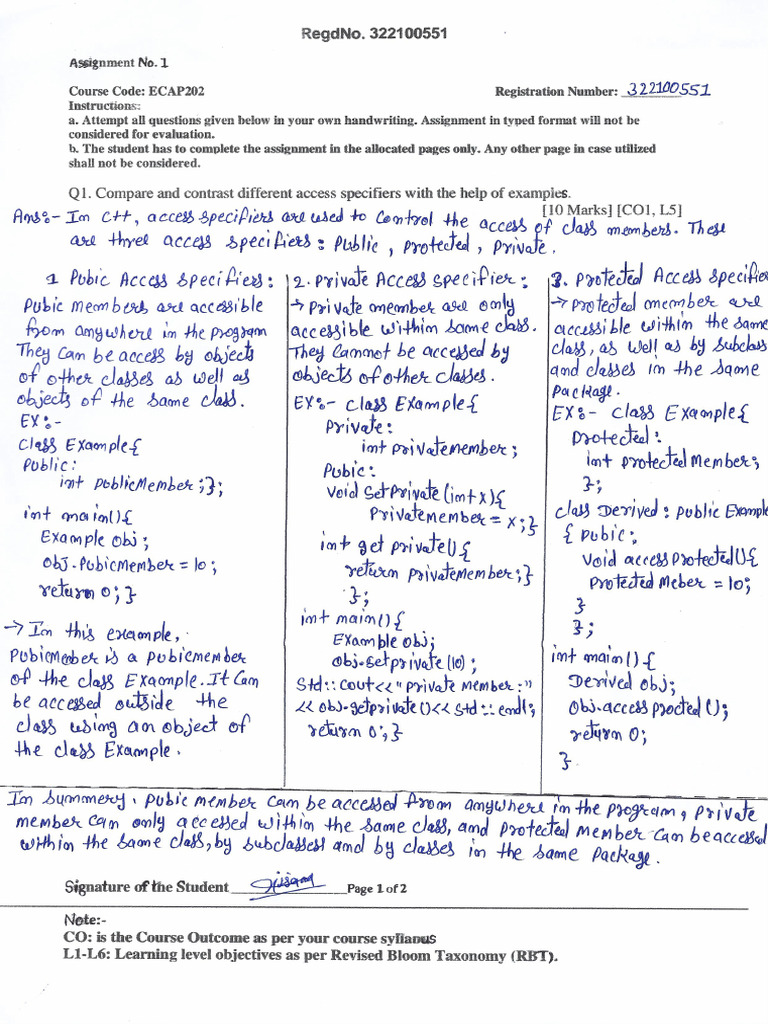 RegdNo. 322100551
Assignment No. 1
Course Code: ECAP202
Registration Number: 322100551
Instructions:
a. Attempt all questions given below in your own handwriting. Assignment in typed format will not be
considered for evaluation.
b. The student has to complete the assignment in the allocated pages only. Any other page in case utilized
shall not be considered.
Q1. Compare and contrast different access specifiers with the help of examples.
[10 Marks] [CO1, L5]
Ans:- In C++, access specifiers are used to control the access of class members. These
are three access specifiers: Public, Protected, Private.
1 Pubic Access Specifiers:
Pubic members are accessible
from anywhere in the program
They can be access by objects
of other classes as well as
objects of the same class.
EX:-
Class Example{
Public:
int publicMember;};
int main(){
Example obj;
obj.PubicMember = 10;
return 0;}
→ In this example,
PubicMember is a pubicmember
of the class Example. It can
be accessed outside the
class using an object of
the class Example.
2. Private Access specifier:
→ Private member are only
accessible within same class.
They cannot be accessed by
objects of other classes.
EX:- Class Example{
Private:
int privateMember;
Pubic:
Void Setprivate(int x){
Privatemember = x;}
int get private(){
return privateMember;}
};
int main(){
Example obj;
obj.Setprivate(10);
Std::cout<<"Private member:"
<< obj.getprivate()<< Std::endl;
return 0;}
3. Protected Access specifier
→ Protected member are
accessible within the same
class, as well as by subclass
and classes in the same
Package.
EX:- Class Example{
Protected:
int protectedMember;
};
class Derived: Public Example
{ Pubic:
Void accessProtected(){
Protected Meber = 10;
}
};
int main(){
Derived obj;
Obj.access procted();
return 0;
}
In Summery, Pubic member can be accessed from anywhere in the program, Private
member can only accessed within the same class, and Protected Member can be accessed
within the same class, by subclassess and by classes in the same Package.
Signature of the Student
Page 1 of 2
Note:-
CO: is the Course Outcome as per your course syllanus
L1-L6: Learning level objectives as per Revised Bloom Taxonomy (RBT).